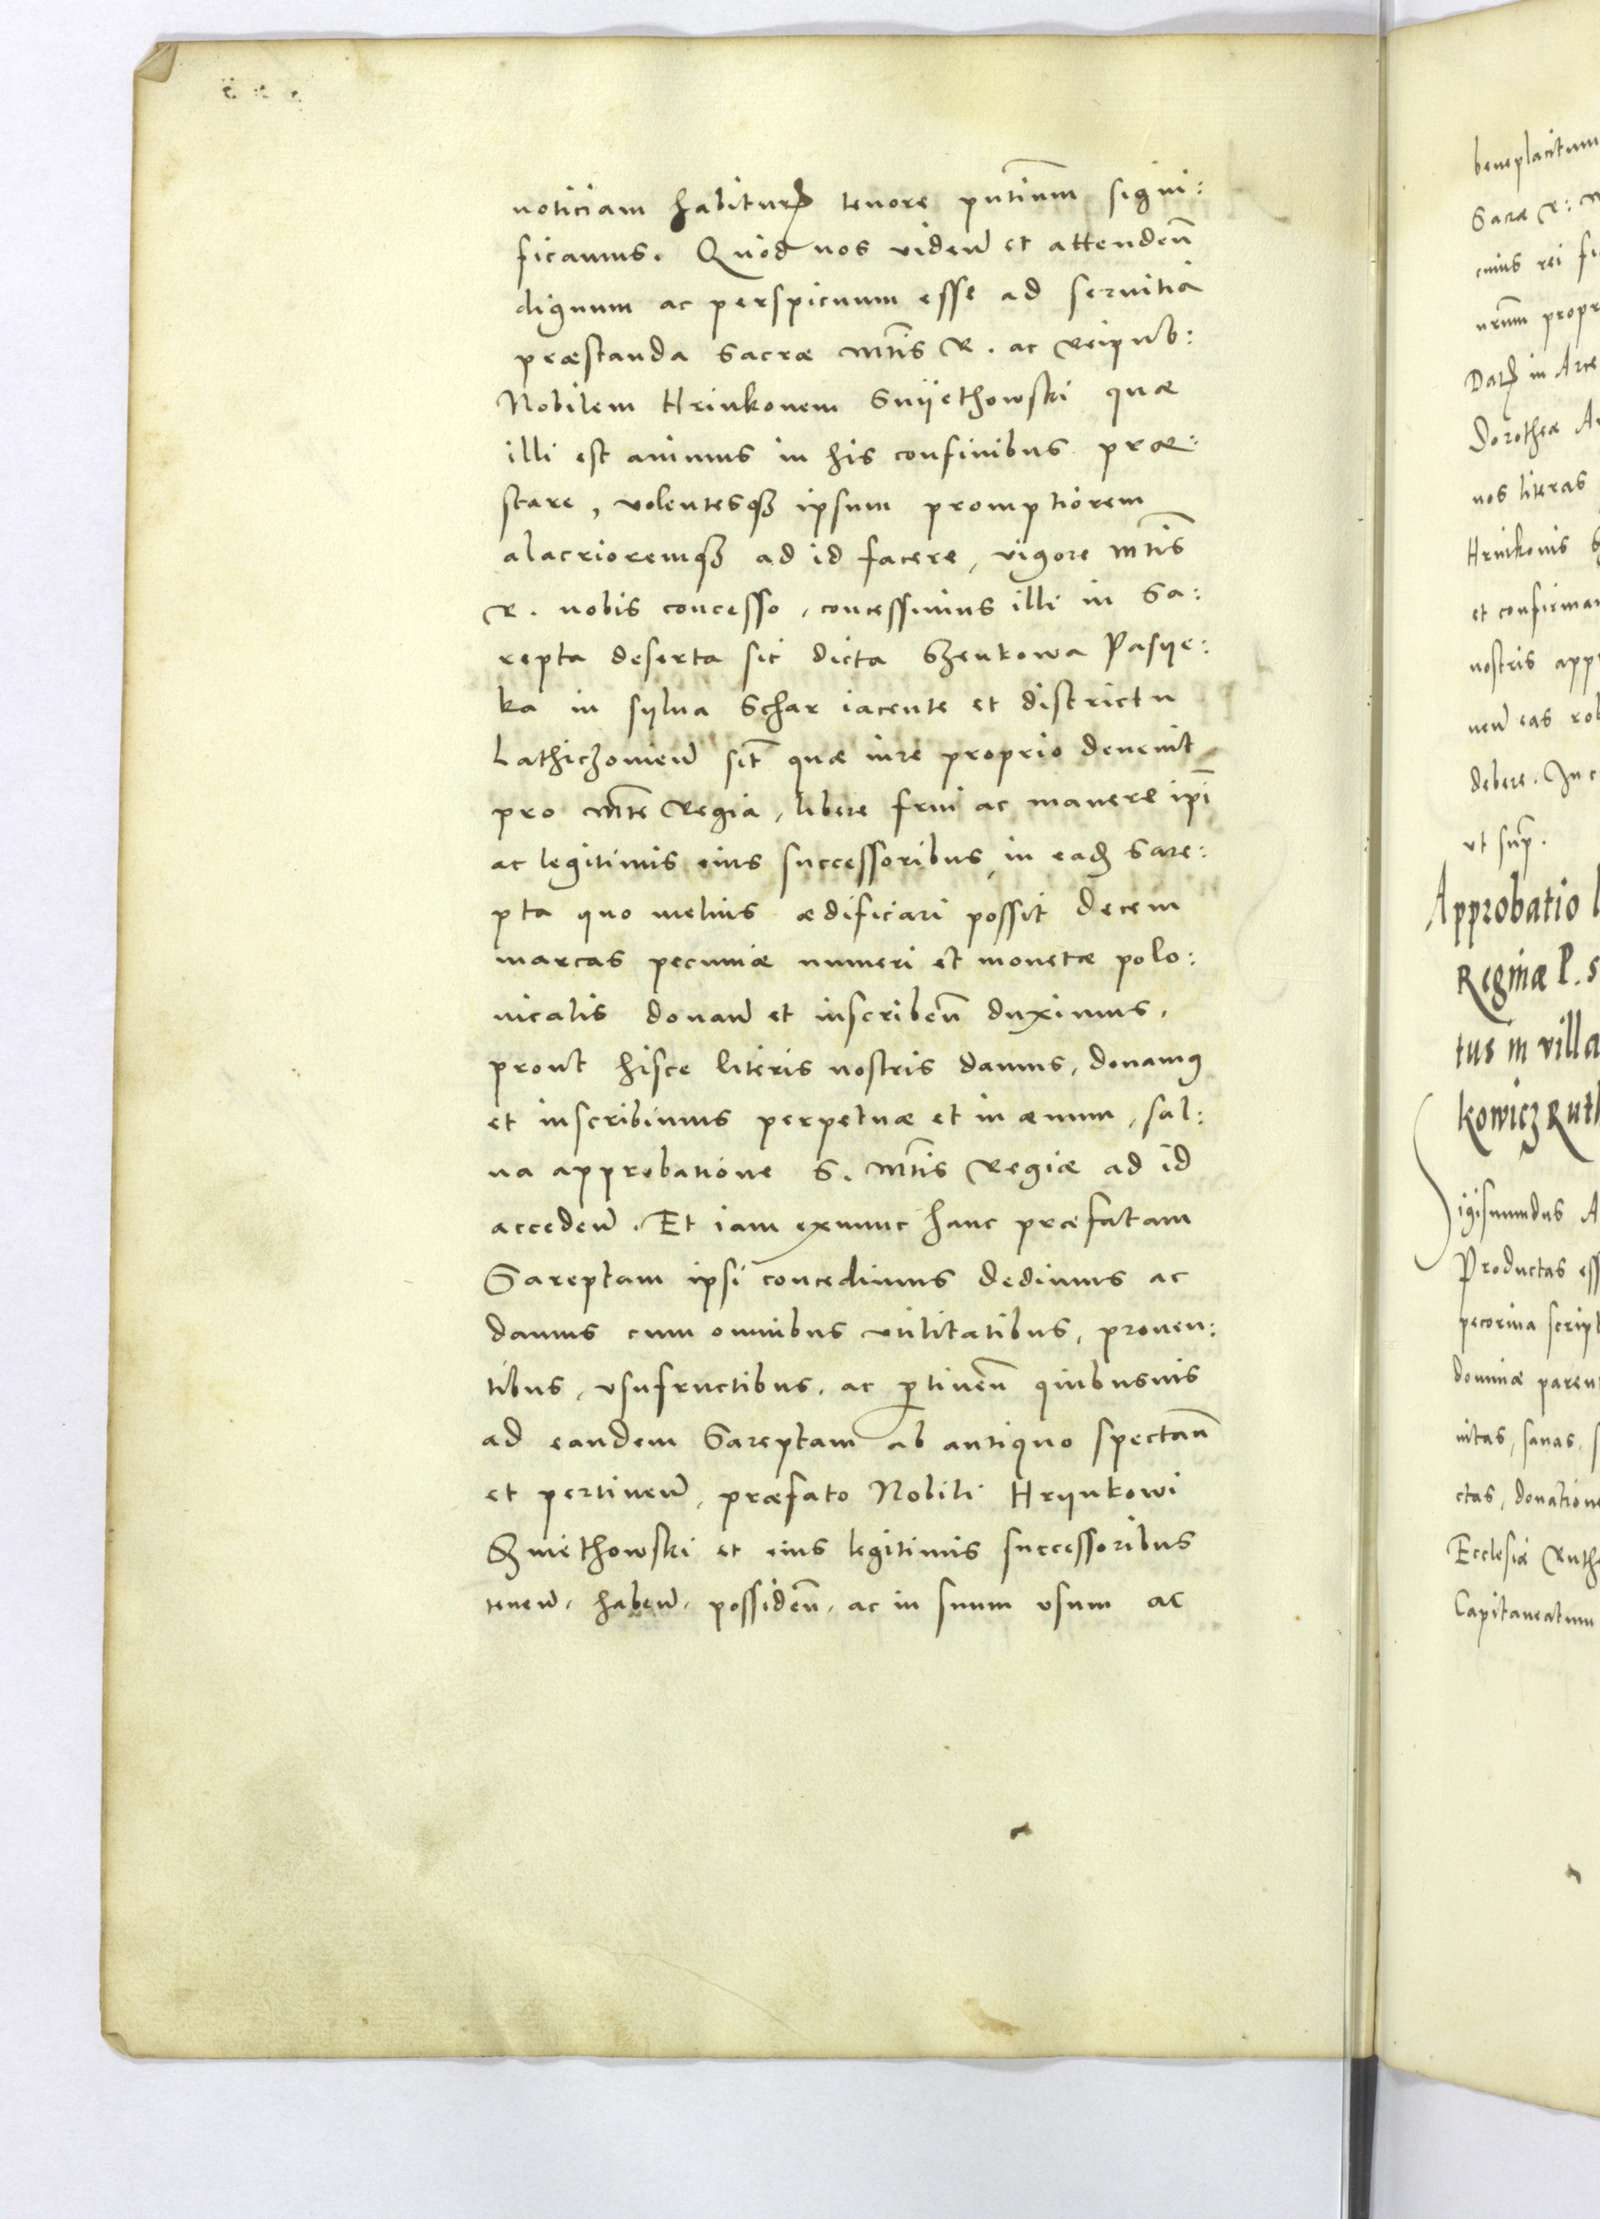 noticiam habituꝝ tenore pn̄tium signi:
ficamus. Quod nos viden̄ et attenden̄
dignum ac perspicuum esse ad seruitia
præstanda Sacræ Mt̄is R. ac Reipub:
Nobilem Hrinkonem Snÿethowski quæ
illi est animus in his confinibus præ:
stare, volentesqꝫ ipsum promptiorem
alacrioremqꝫ ad id facere, vigore Mt̄is
R. nobis concesso, concessimus illi in Sa:
repta deserta sic dicta Szenkowa Pasÿe:
ka in sÿlua Schar iacente et districtu
Lathiczouien̄ sit̄ quæ iure proprio deuenit
pro Mt̄e Regia, libere frui ac manere ip̄i
ac legitimis eius successoribus, in eadꝫ Sare:
pta quo melius ædificari possit decem
marcas pecuniæ numeri et monetæ polo:
nicalis donan̄ et inscriben̄ duximus,
prout hisce literis nostris damus, donamꝰ
et inscribimus perpetuæ et in æuum, sal:
ua approbatione S. Mt̄is Regiæ ad id
acceden̄. Et iam exnunc hanc præfatam
Sareptam ipsi concedimus dedimus ac
damus cum omnibus vtilitatibus, prouen:
tibus, vsufructibus, ac ꝑtinen̄ quibusuis
ad eandem Sareptam ab antiquo spectan̄
et pertinen̄, præfato Nobili Hrÿnkowi
Szniethowski et eius legitimis successoribus
tenen̄, haben̄, possiden̄, ac in suum vsum ac
beneplacitum
Sacræ R:
cuius rei
nr̄um
Datꝫ in Arce
Dorotheæ
nos literas
Hrinkonis
et
nostris
nen̄ eas
debere. In
vt sup̄.
Approbatio
Reginæ P.
tus in villa
kowicz
Sigismundus
Productas
pecorina
dominæ
sanas,
Ecclesiæ
Capitaneatum